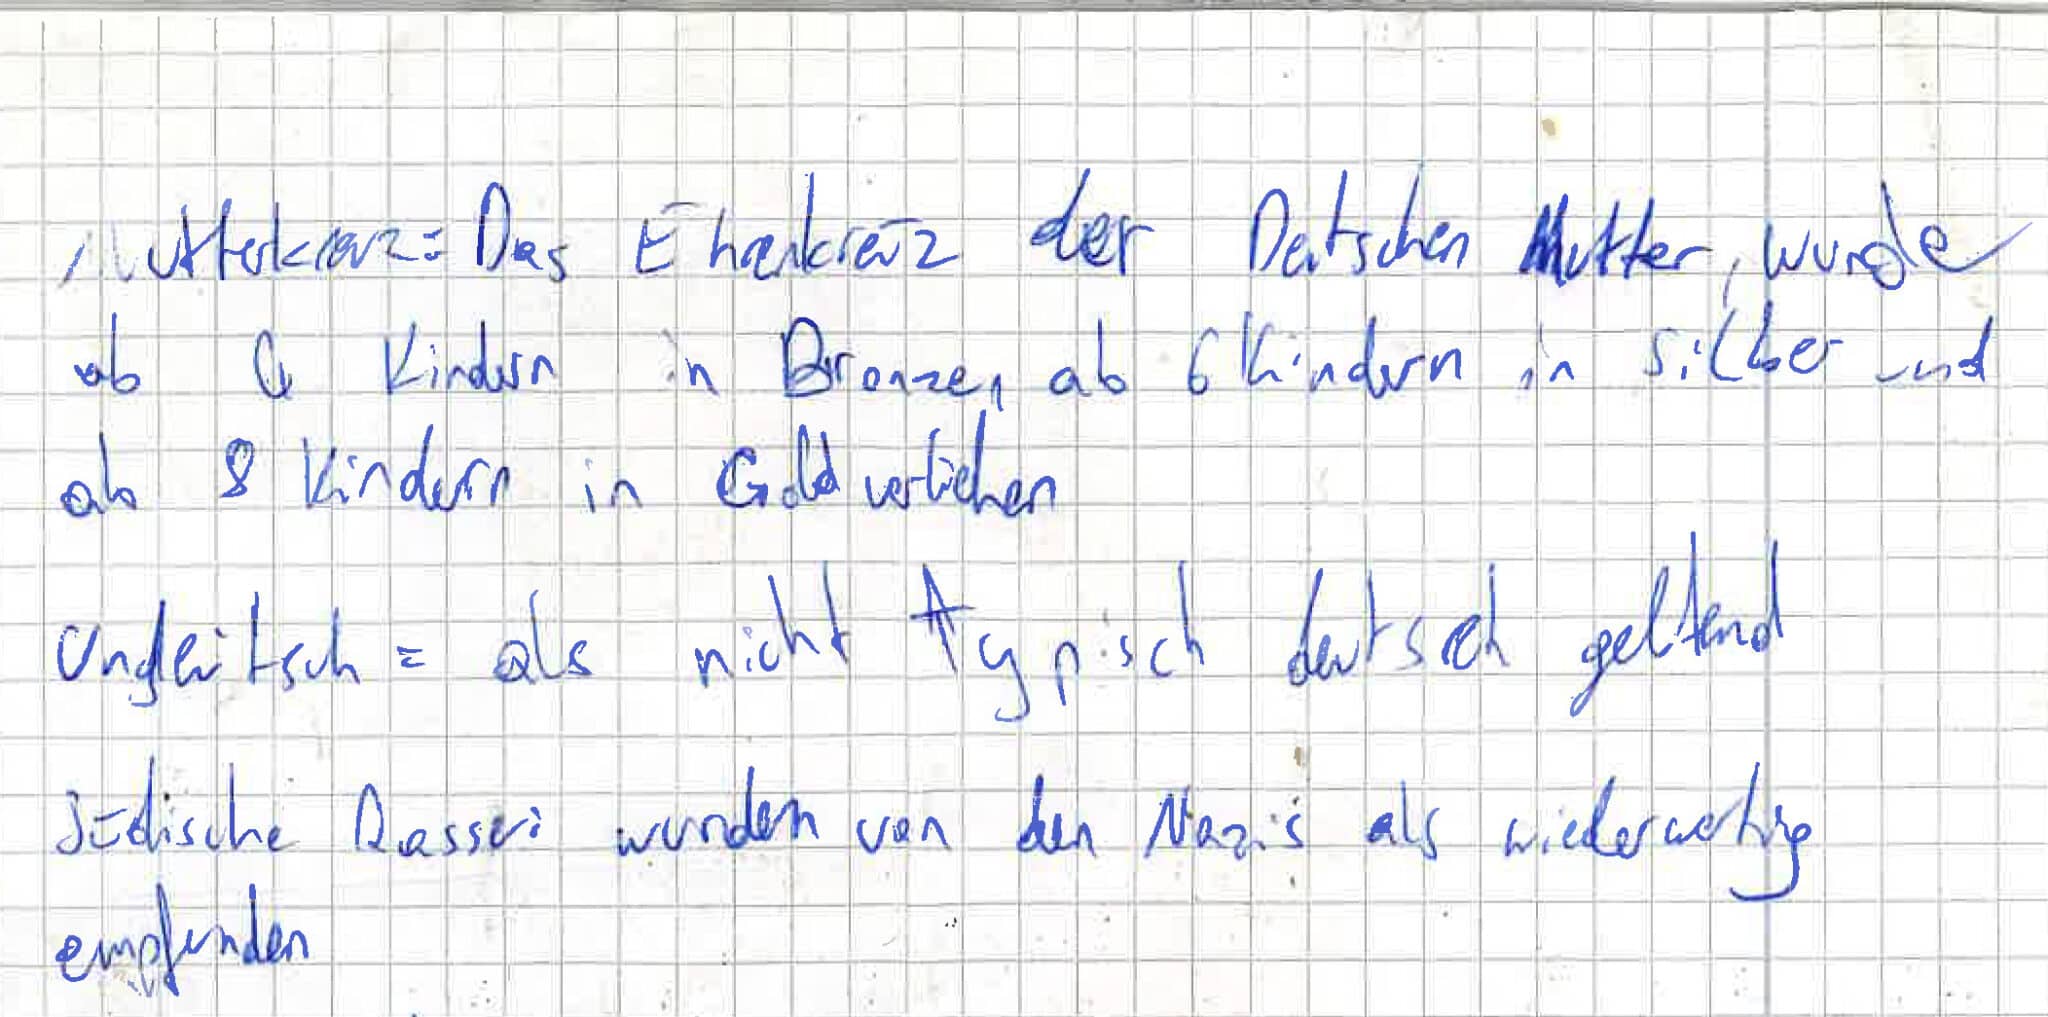 Mutterkreuz= Das Ehrenkreuz der Deutschen Mutter, wurde
ab 4 Kindern in Bronze, ab 6 Kindern in Silber und
ab 8 Kindern in Gold verliehen
Undeutsch = als nicht typisch deutsch geltend
Jüdische Rasse: wurden von den Nazis als wiederwertig
empfunden